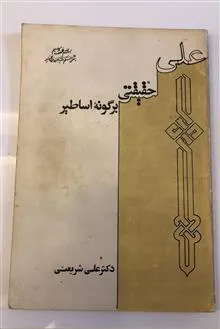 علی
حقیقتی
برگونهٔ اساطیر
دکتر علی شریعتی